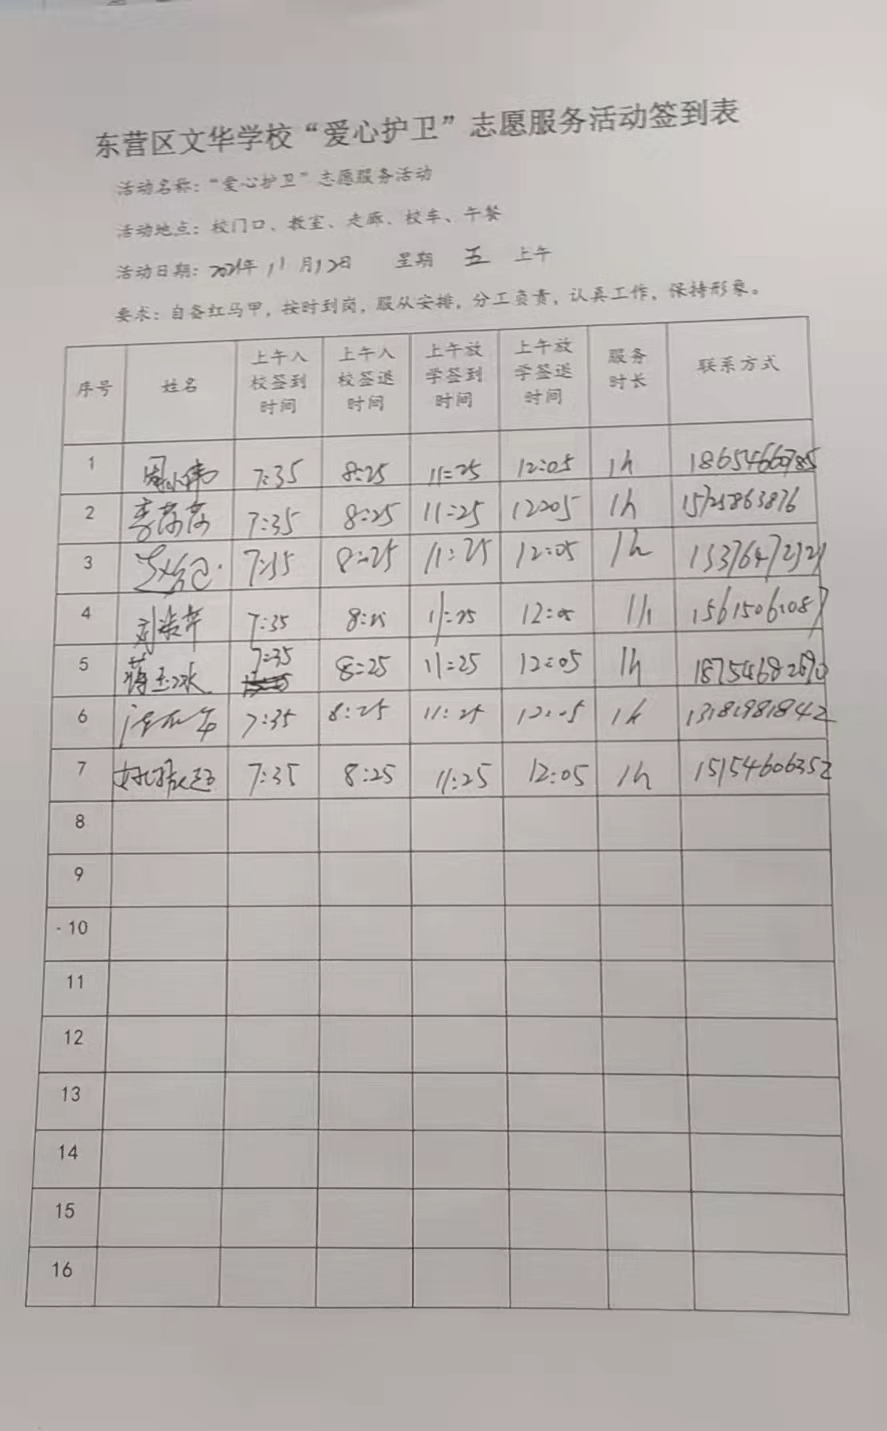 东营区文华学校“爱心护卫”志愿服务活动签到表
活动名称：“爱心护卫”志愿服务活动
活动地点：校门口、教室、走廊、校车、午餐
活动日期：2021年 11 月12日 星期 五 上午
要求：自备红马甲，按时到岗，服从安排，分工负责，认真工作，保持形象。
序号 姓名 上午入校签到时间 上午入校签退时间 上午放学签到时间 上午放学签退时间 服务时长 联系方式
1 7:35 8:25 11:25 12:05 1h
2 7:35 8:25 11:25 12:05 1h 15725863876
3 7:35 8:25 11:25 12:05 1h
4 7:35 8:25 11:25 12:05 1h 15615061087
5 蒋玉冰 7:35 8:25 11:25 12:05 1h
6 7:35 8:25 11:25 12:05 1h 13181981842
7 7:35 8:25 11:25 12:05 1h 15154606352
8
9
10
11
12
13
14
15
16